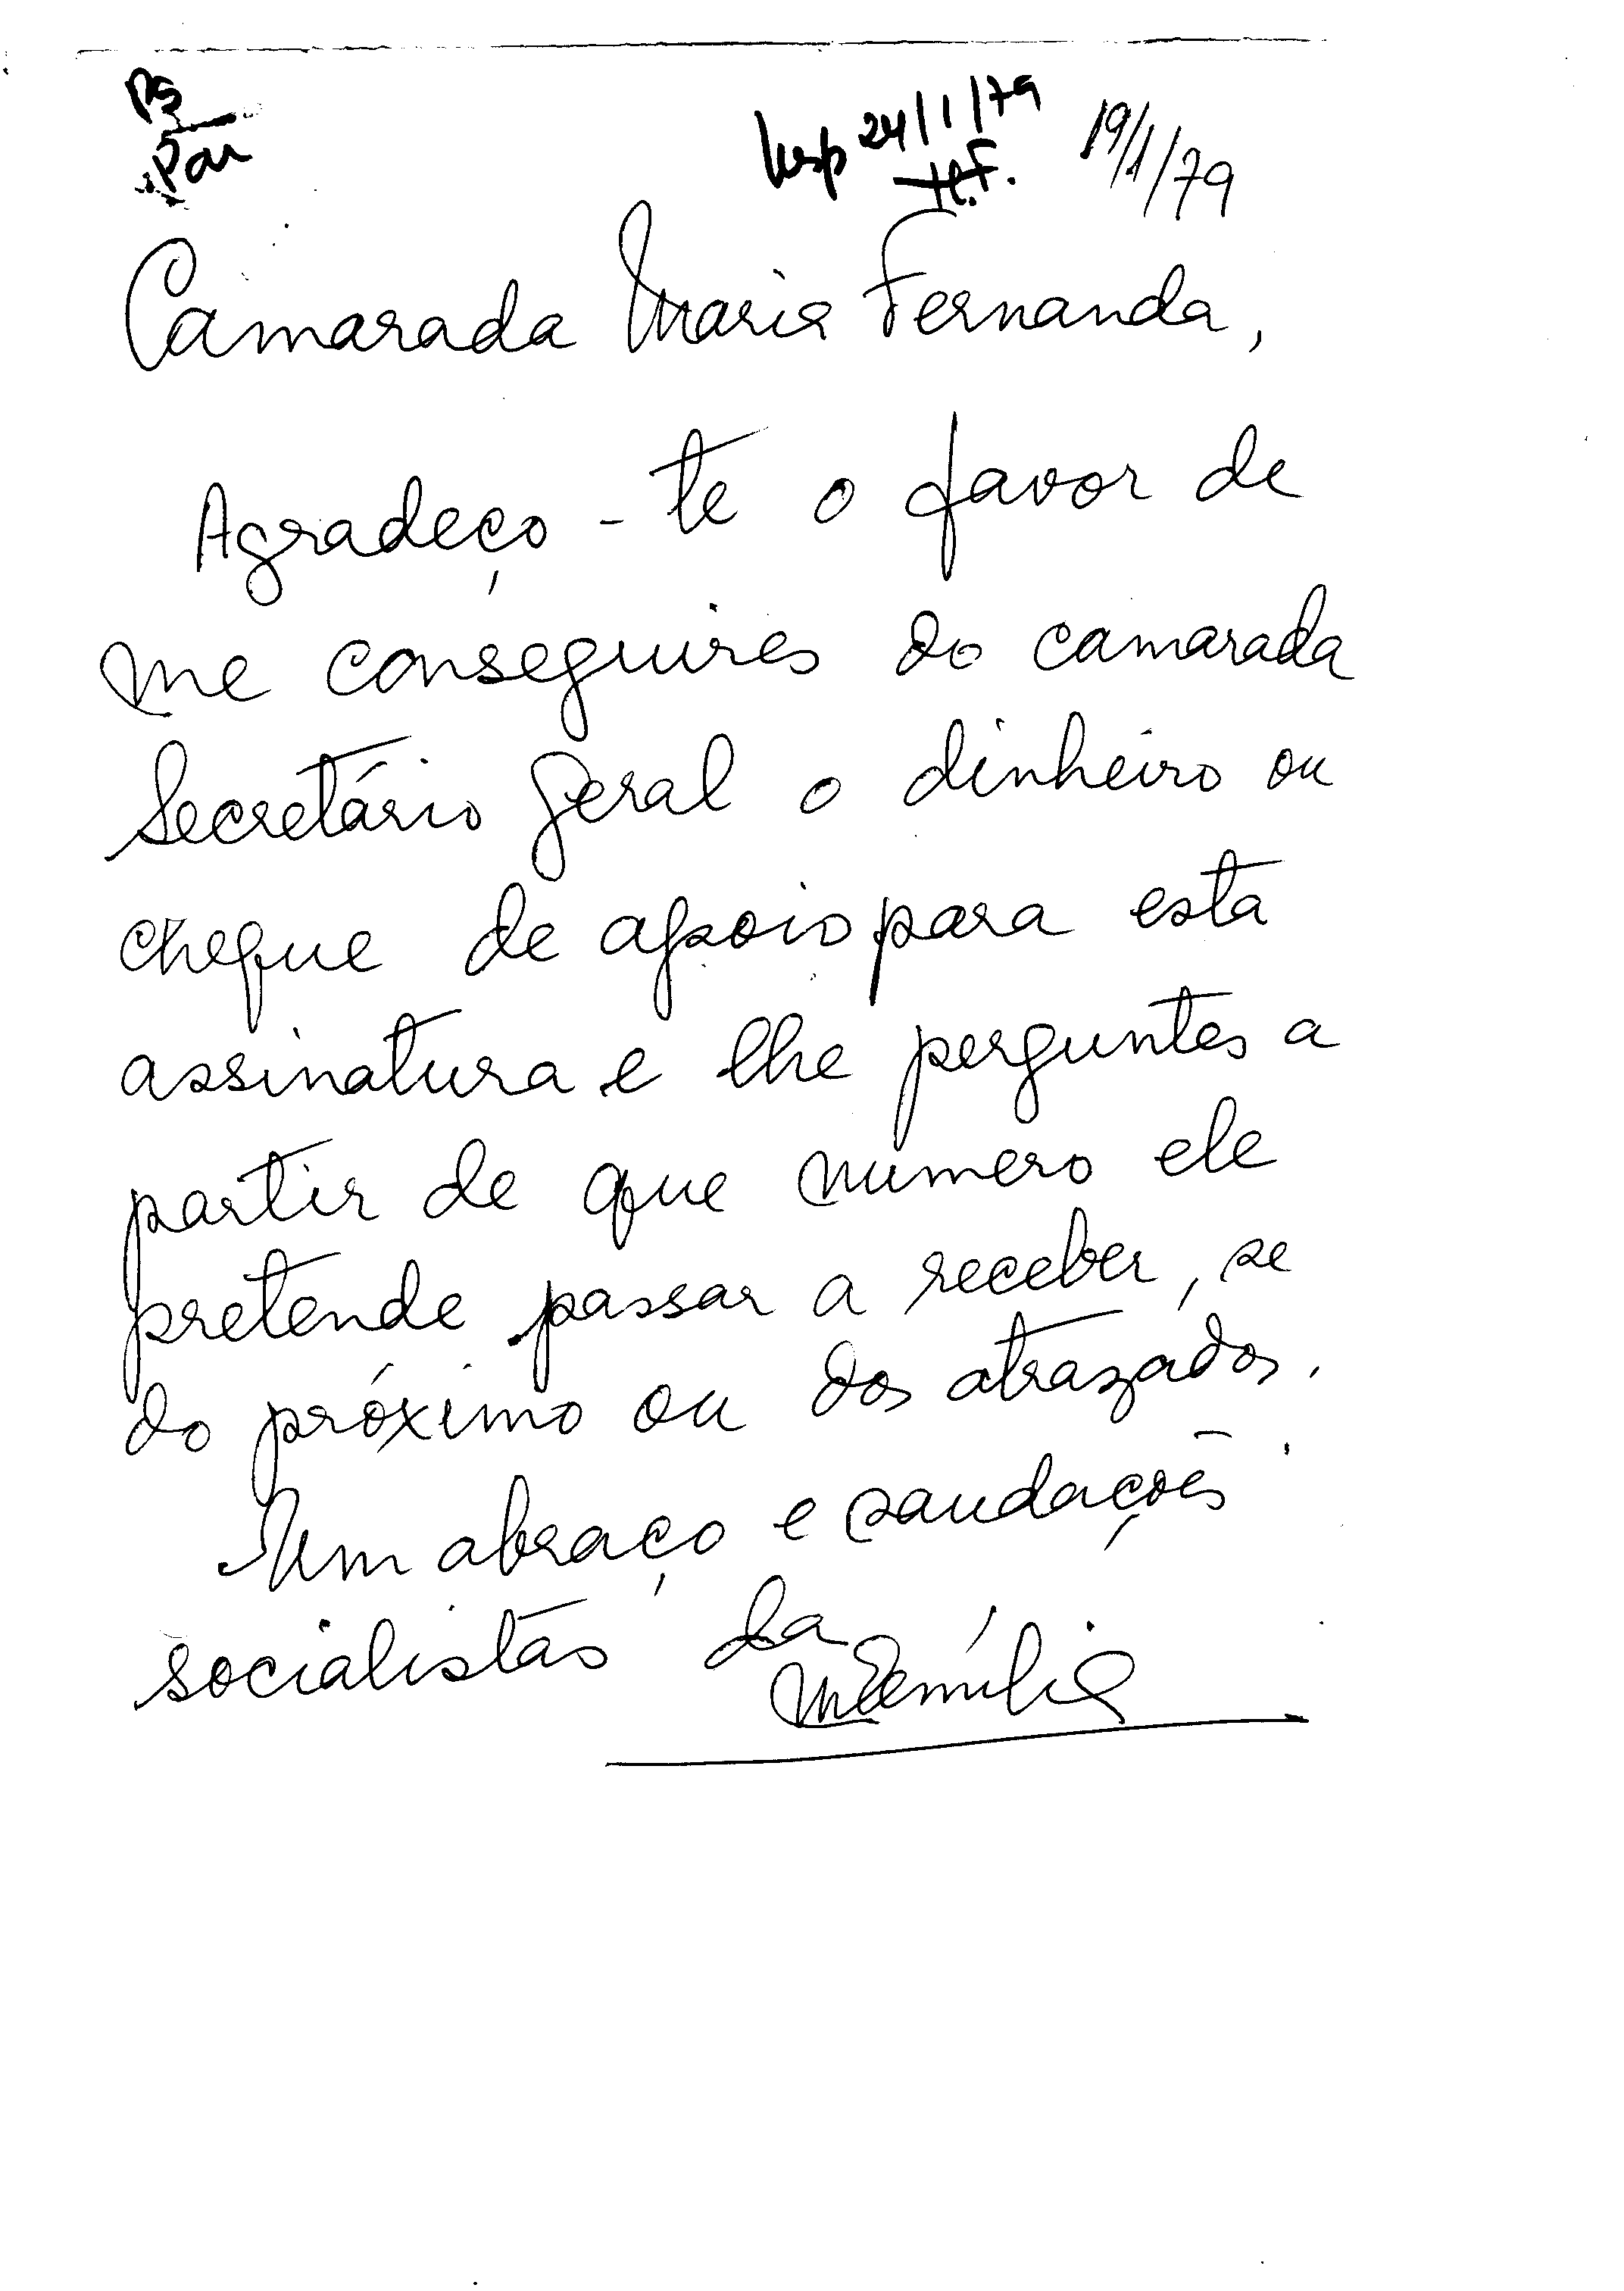 PS
Par
Resp 24/1/79
19/1/79
Camarada Maria Fernanda,
Agradeço-te o favor de
me conseguires do camarada
Secretário Geral o dinheiro ou
cheque de apoio para esta
assinatura e lhe perguntes a
partir de que numero ele
pretende passar a receber, se
do próximo ou dos atrazados.
Um abraço e saudações
socialistas da
Mª Emília